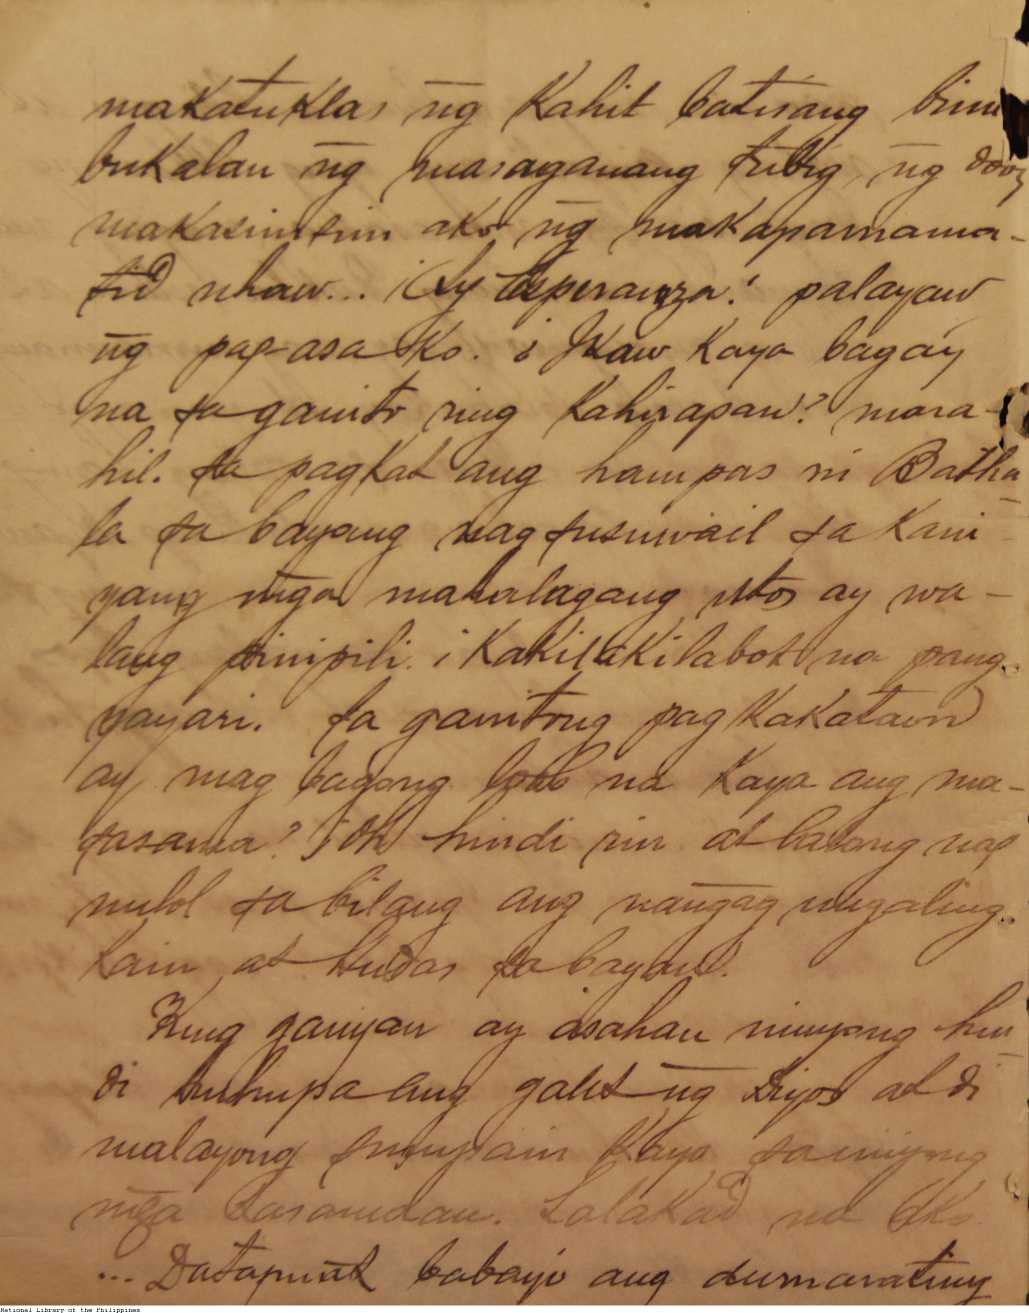 makatuklas ng̃ kahit batisang binu
bukalan ng̃ masaganang tubig, ng̃ dooy
makasimsim ako ng̃ makapamama-
tid uhaw... ¡Ay Esperanza! palayaw
ng̃ pag-asa ko. ¿Ikaw kaya bagay
na sa ganito ring kahirapan? mara-
hil. sa pagkat ang hampas ni Batha
la sa bayang nag susuwail sa kani
yang mg̃a mahalagang utos ay wa-
lang pinipili. ¡Kakilakilabot na pang
yayari. Sa ganitong pag kakataon
ay mag bagong loob na kaya ang ma-
sasama? ¡Oh hindi rin at
sa bilang ang
kain at Hudas sa bayan.
Kung ganyan ay asahan ninyong hin
di huhupa ang galit ng̃ Diyos at di
malayong kayo sa inyong
mg̃a kasamaan. Lalakad na ako
... Datapuat babayi ang dumarating
National Library of the Philippines